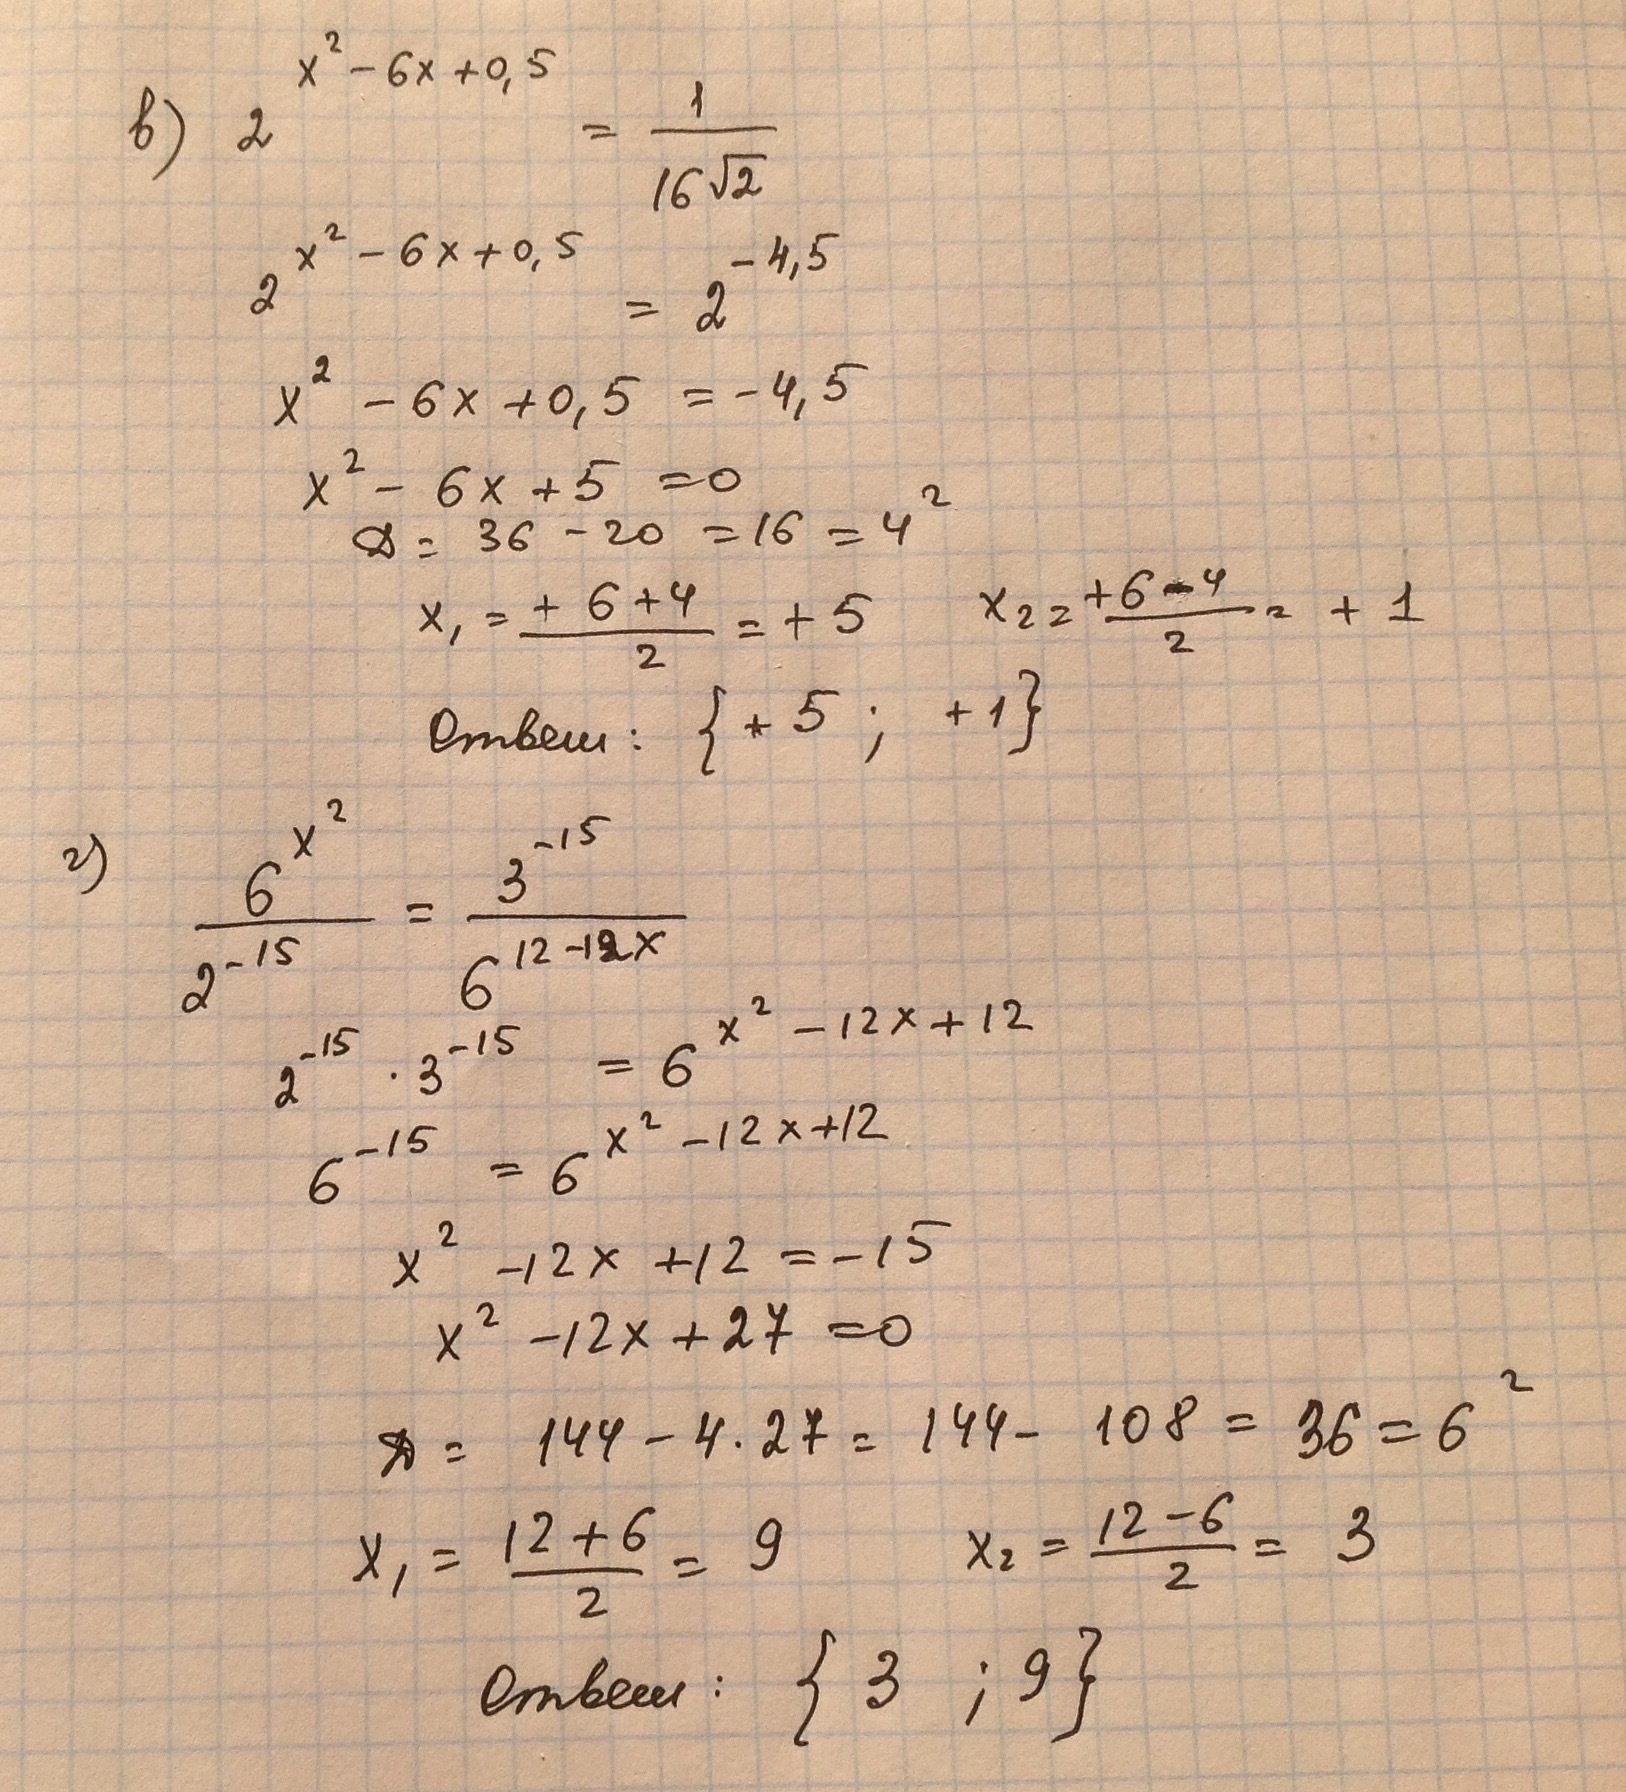 в) 2^{x² - 6x + 0,5} = 1/(16√2)
2^{x² - 6x + 0,5} = 2^{-4,5}
x² - 6x + 0,5 = -4,5
x² - 6x + 5 = 0
D = 36 - 20 = 16 = 4²
x₁ = (+6+4)/2 = +5    x₂ = (+6-4)/2 = +1
Ответ: {+5; +1}
г) 6^{x²}/2^{-15} = 3^{-15}/6^{12-12x}
2^{-15} · 3^{-15} = 6^{x² - 12x + 12}
6^{-15} = 6^{x² - 12x + 12}
x² - 12x + 12 = -15
x² - 12x + 27 = 0
D = 144 - 4·27 = 144 - 108 = 36 = 6²
x₁ = (12+6)/2 = 9    x₂ = (12-6)/2 = 3
Ответ: {3; 9}